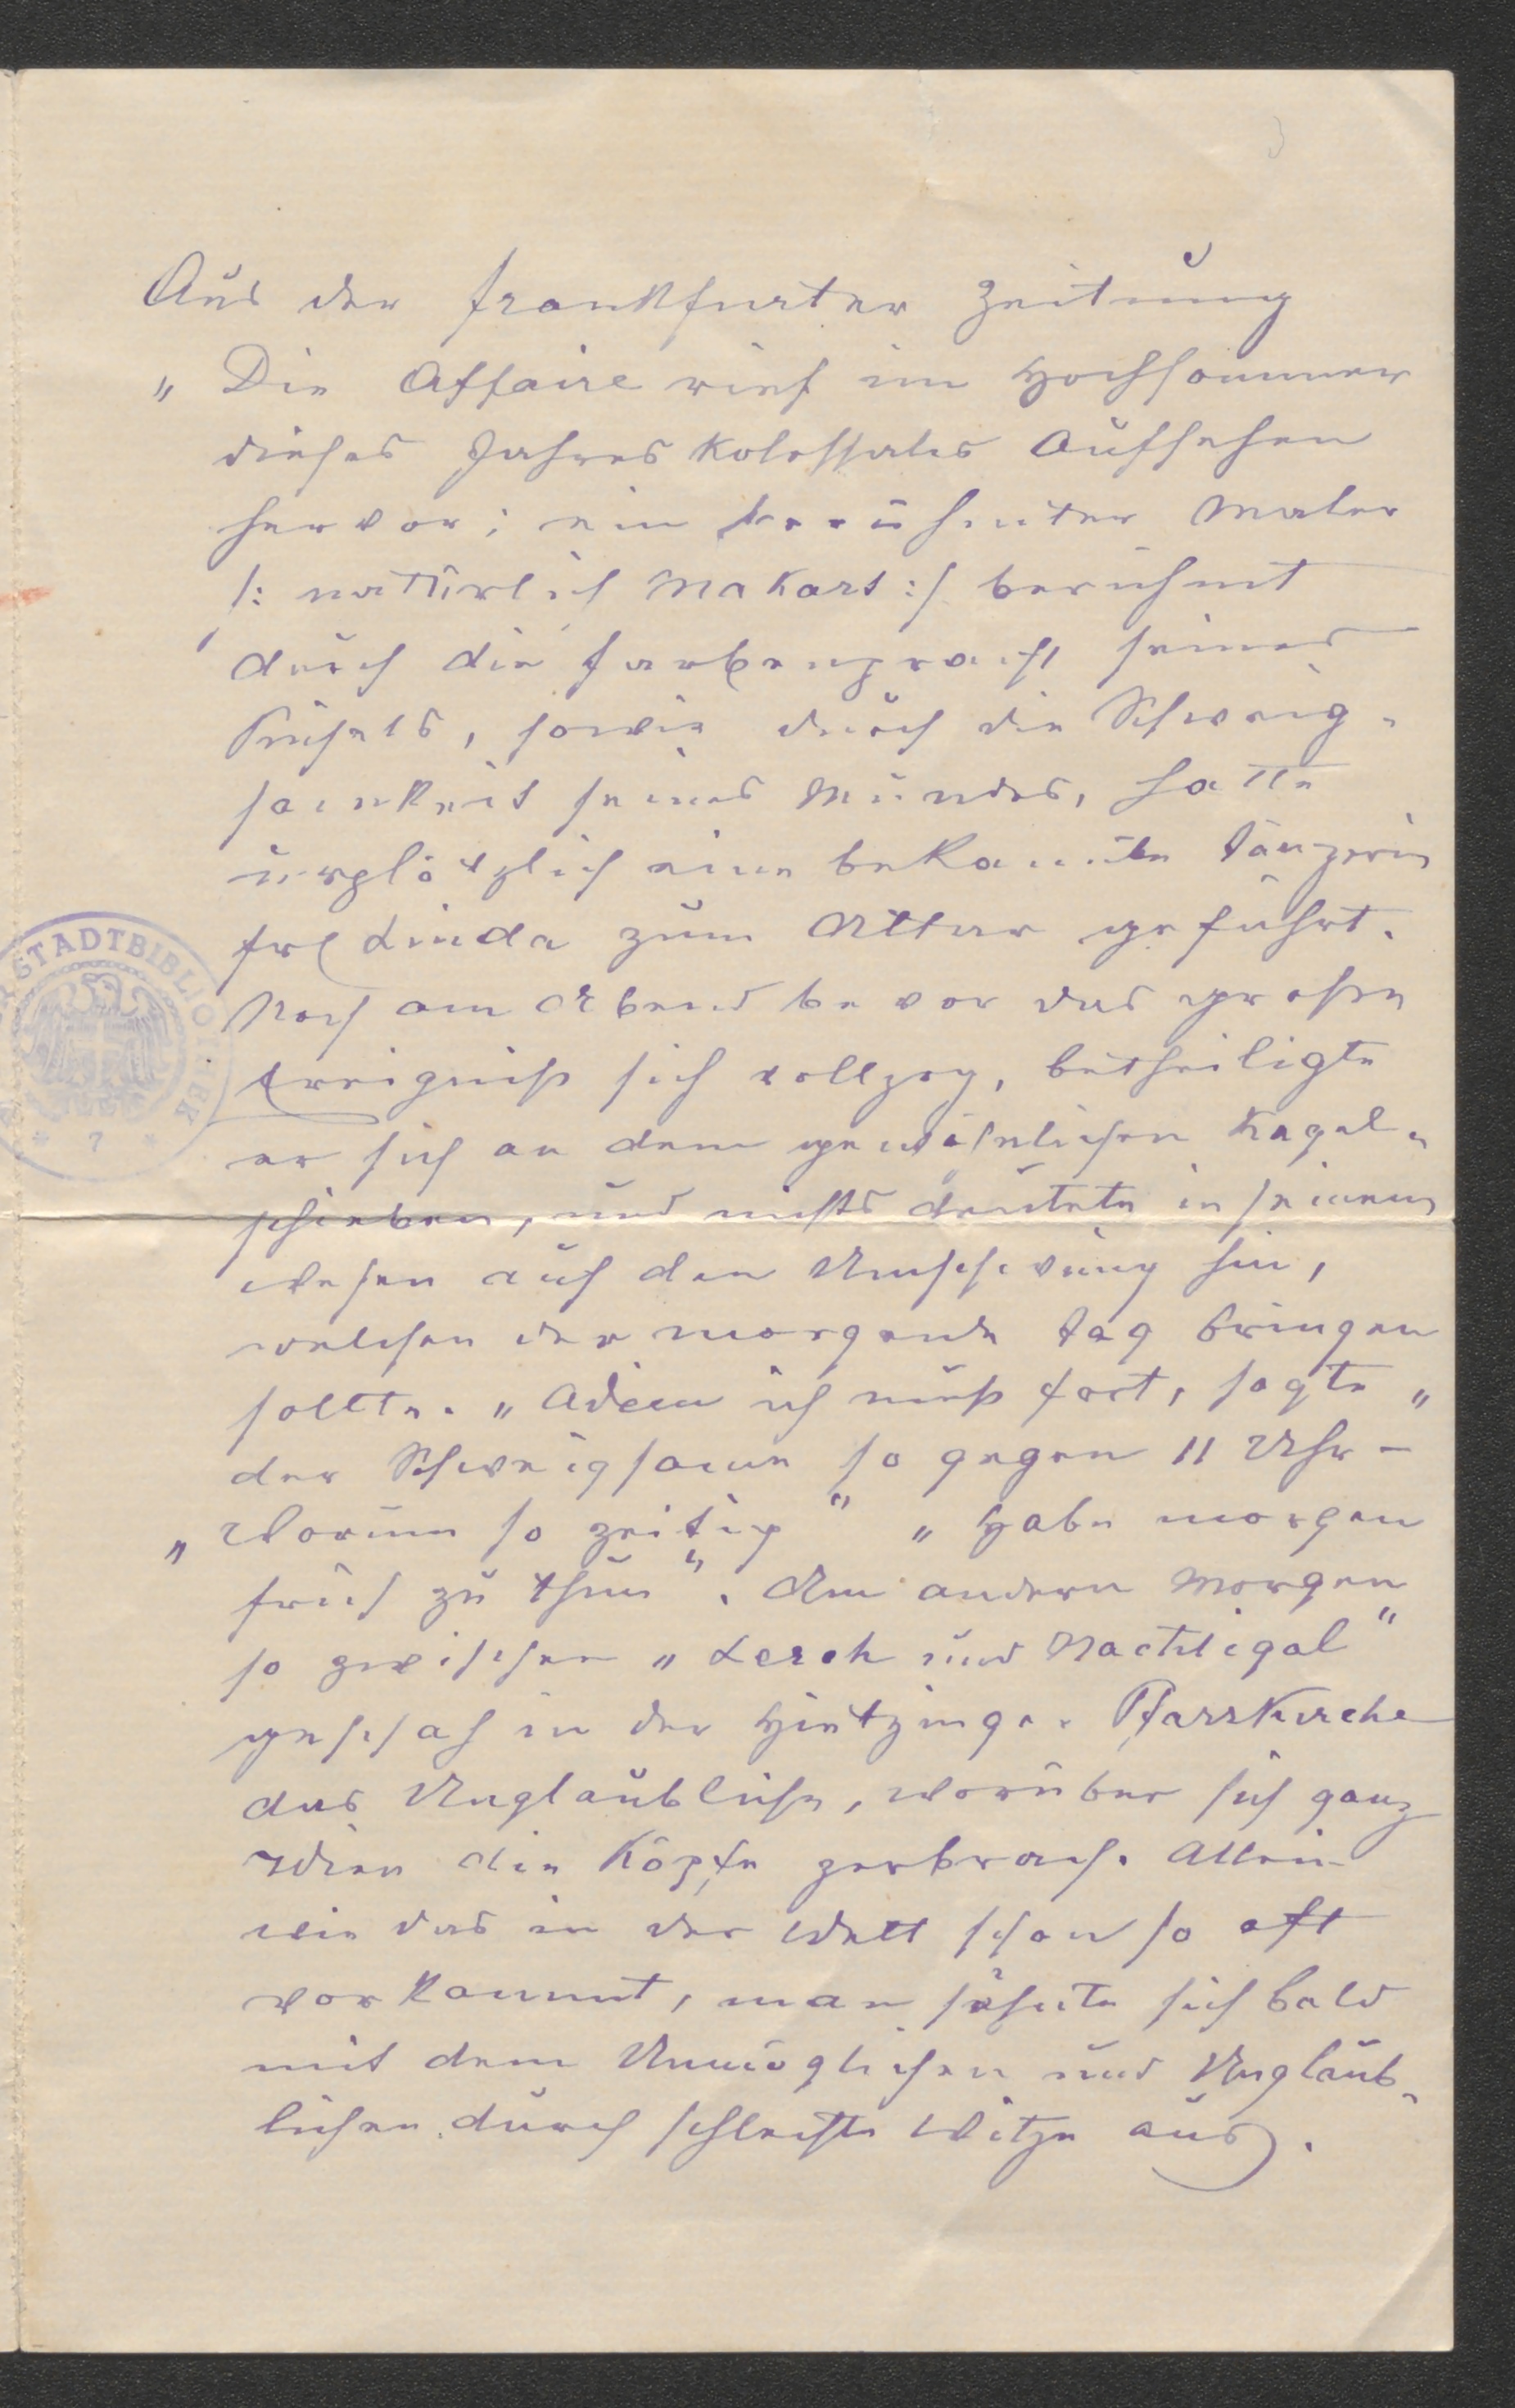 Aus der Frankfurter Zeitung
„ Die Affaire rief im Hochsommer
dieses Jahres kolossales Aufsehen
hervor; ein berühmter Maler
/: natürlich Makart :/ berühmt
durch die Farbenpracht seines
Pinsels, sowie durch die Schweig-
samkeit seines Mundes, hatte
urplötzlich eine bekannte Tänzerin
Frl Linda zum Altar geführt.
Noch am Abend bevor das große
Ereigniß sich vollzog, betheiligte
er sich an dem gewöhnlichen Kegel-
schieben, und nichts deutete in seinem
Wesen auf den Umschwung hin,
welchen der morgende Tag bringen
sollte. „Adieu ich muß fort, sagte „
der Schweigsame so gegen 11 Uhr –
„ Warum so zeitig " „ Habe morgen
früh zu thun ". Am andern Morgen
so zwischen „ Lerch und Nachtigal "
geschah in der Hietzinger Pfarrkirche
das Unglaubliche, worüber sich ganz
Wien die Köpfe zerbrach. Allein
wie das in der Welt schon so oft
vorkommt, man söhnte sich bald
mit dem Unmöglichen und Unglaub-
lichen durch schlechte Witze aus.
STADTBIBLIOTHEK
* 7 *